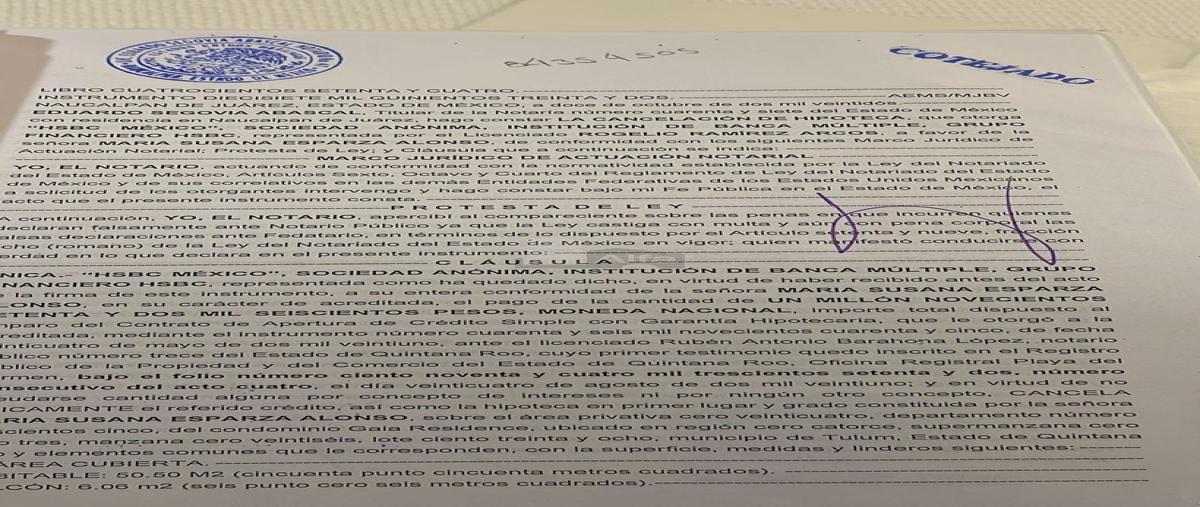 COTEJADO
LIBRO CUATROCIENTOS SETENTA Y CUATRO.
INSTRUMENTO DIECISIETE MIL QUINIENTOS TREINTA Y DOS. AEMS/MJBV
NAUCALPAN DE JUÁREZ, ESTADO DE MÉXICO, a doce de octubre de dos mil veintidós.
EDUARDO SEGOVIA ABASCAL, Titular de la Notaría número cuarenta y siete del Estado de México
con residencia en Naucalpan de Juárez, hago constar LA CANCELACIÓN DE HIPOTECA, que otorga
"HSBC MÉXICO", SOCIEDAD ANÓNIMA, INSTITUCIÓN DE BANCA MÚLTIPLE, GRUPO
FINANCIERO HSBC, representada por el licenciado ROGELIO RAMÍREZ ARCOS, a favor de la
señora MARIA SUSANA ESPARZA ALONSO, de conformidad con los siguientes Marco Jurídico de
Actuación Notarial; Protesta de Ley; y Cláusula que a continuación se indica:
MARCO JURÍDICO DE ACTUACIÓN NOTARIAL
YO, EL NOTARIO, actuando de conformidad con la normatividad establecida por la Ley del Notariado
del Estado de México, Artículos Sexto, Octavo y Cuarto del Reglamento de Ley del Notariado del Estado
de México y de sus correlativos en las demás Entidades Federativas de los Estados Unidos Mexicanos,
a solicitud de los otorgantes intervengo y hago constar bajo mi Fe Pública en el Estado de México, el
acto que el presente instrumento consta.
PROTESTA DE LEY
A continuación, YO, EL NOTARIO, apercibí al compareciente sobre las penas en que incurren quienes
declaran falsamente ante Notario Público ya que la Ley castiga con multa y
alsas declaraciones ante Fedatario, en términos de lo dispuesto por el Artículo setenta y nueve, fracción
cho (romano) de la Ley del Notariado del Estado de México en vigor; quien manifestó conducirse con
erdad en lo que declara en el presente instrumento:
CLÁUSULA
NICA.- "HSBC MÉXICO", SOCIEDAD ANÓNIMA, INSTITUCIÓN DE BANCA MÚLTIPLE, GRUPO
NANCIERO HSBC, representada como ha quedado dicho, en virtud de haber recibido antes del acto
la firma de este instrumento, a su entera conformidad de la señora MARIA SUSANA ESPARZA
LONSO, en su carácter de acreditada, el pago de la cantidad de UN MILLÓN NOVECIENTOS
ETENTA Y DOS MIL SEISCIENTOS PESOS, MONEDA NACIONAL, importe total dispuesto al
mparo del Contrato de Apertura de Crédito Simple con Garantía Hipotecaria, que le otorgó a la
reditada, mediante el instrumento número cuarenta y seis mil novecientos cuarenta y cinco, de fecha
inticuatro de mayo de dos mil veintiuno, ante el licenciado Rubén Antonio Barahona López, notario
blico número trece del Estado de Quintana Roo, cuyo primer testimonio quedo inscrito en el Registro
blico de la Propiedad y del Comercio del Estado de Quintana Roo, Oficina Registral Playa del
rmen, bajo el folio número ciento noventa y cuatro mil trescientos setenta y dos, número
nsecutivo del acto cuatro, el día veinticuatro de agosto de dos mil veintiuno; y en virtud de no
udarse cantidad alguna por concepto de intereses ni por ningún otro concepto, CANCELA
ICAMENTE el referido crédito, así como la hipoteca en primer lugar y grado constituida por la señora
RIA SUSANA ESPARZA ALONSO, sobre el área privativa cero veinticuatro, departamento número
scientos cinco, del condominio Gaia Residence, ubicado en región cero catorce, supermanzana cero
o tres, manzana cero veintiséis, lote ciento treinta y ocho, municipio de Tulum, Estado de Quintana
o y elementos comunes que le corresponden, con la superficie, medidas y linderos siguientes:
ÁREA CUBIERTA.
BITABLE: 50.50 M2 (cincuenta punto cincuenta metros cuadrados).
LCÓN: 6.06 m2 (seis punto cero seis metros cuadrados).